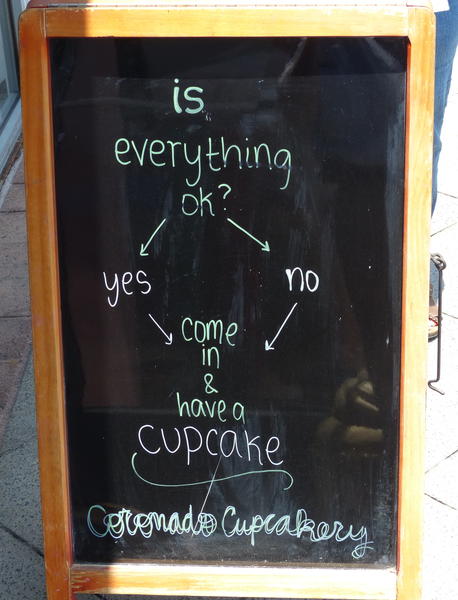 is
everything
ok?
yes no
come
in
&
have a
CUPCAKE
Coronado Cupcakery